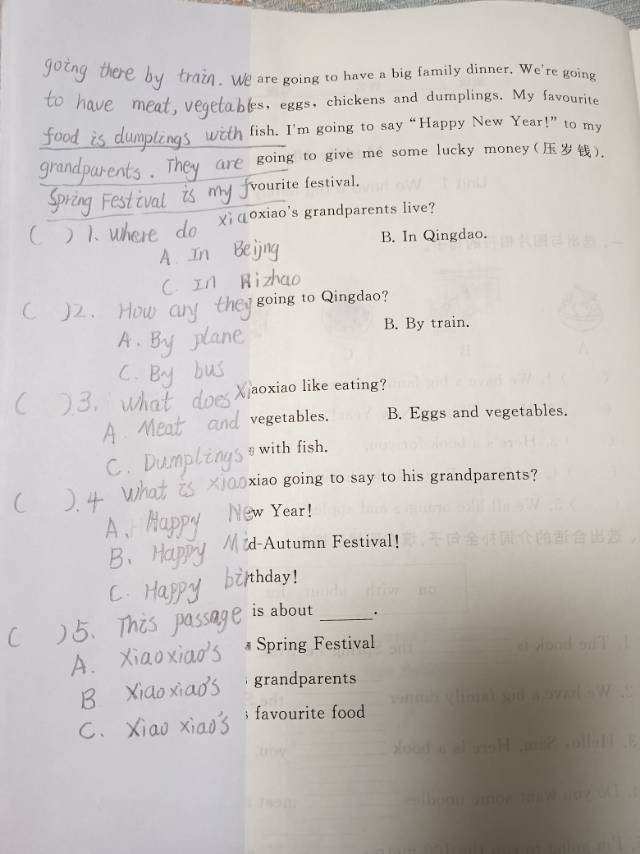 going there by train. We are going to have a big family dinner. We're going
to have meat, vegetables, eggs, chickens and dumplings. My favourite
food is dumplings with fish. I'm going to say "Happy New Year!" to my
grandparents. They are going to give me some lucky money(压岁钱).
Spring Festival is my fvourite festival.
( ) 1. Where do xiaoxiao's grandparents live?
A In Beijng
B. In Qingdao.
C. In Rizhao
( )2. How any they going to Qingdao?
A. By plane
B. By train.
C. By bus
( ).3. What does Xiaoxiao like eating?
A. Meat and vegetables.
B. Eggs and vegetables.
C. Dumplings with fish.
( ).4 What is xiaoxiao going to say to his grandparents?
A. Happy New Year!
B. Happy Mid-Autumn Festival!
C. Happy birthday!
( )5. This passage is about ______.
A. Xiaoxiao's Spring Festival
B Xiaoxiao's grandparents
C. Xiao xiao's favourite food